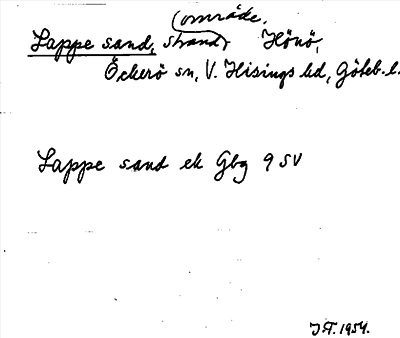 (område.
Lappe sand, strand) Hönö,
Öckerö sn, V. Hisings hd, Göteb. l.
Lappe sand ek Gbg 9 SV
1954.